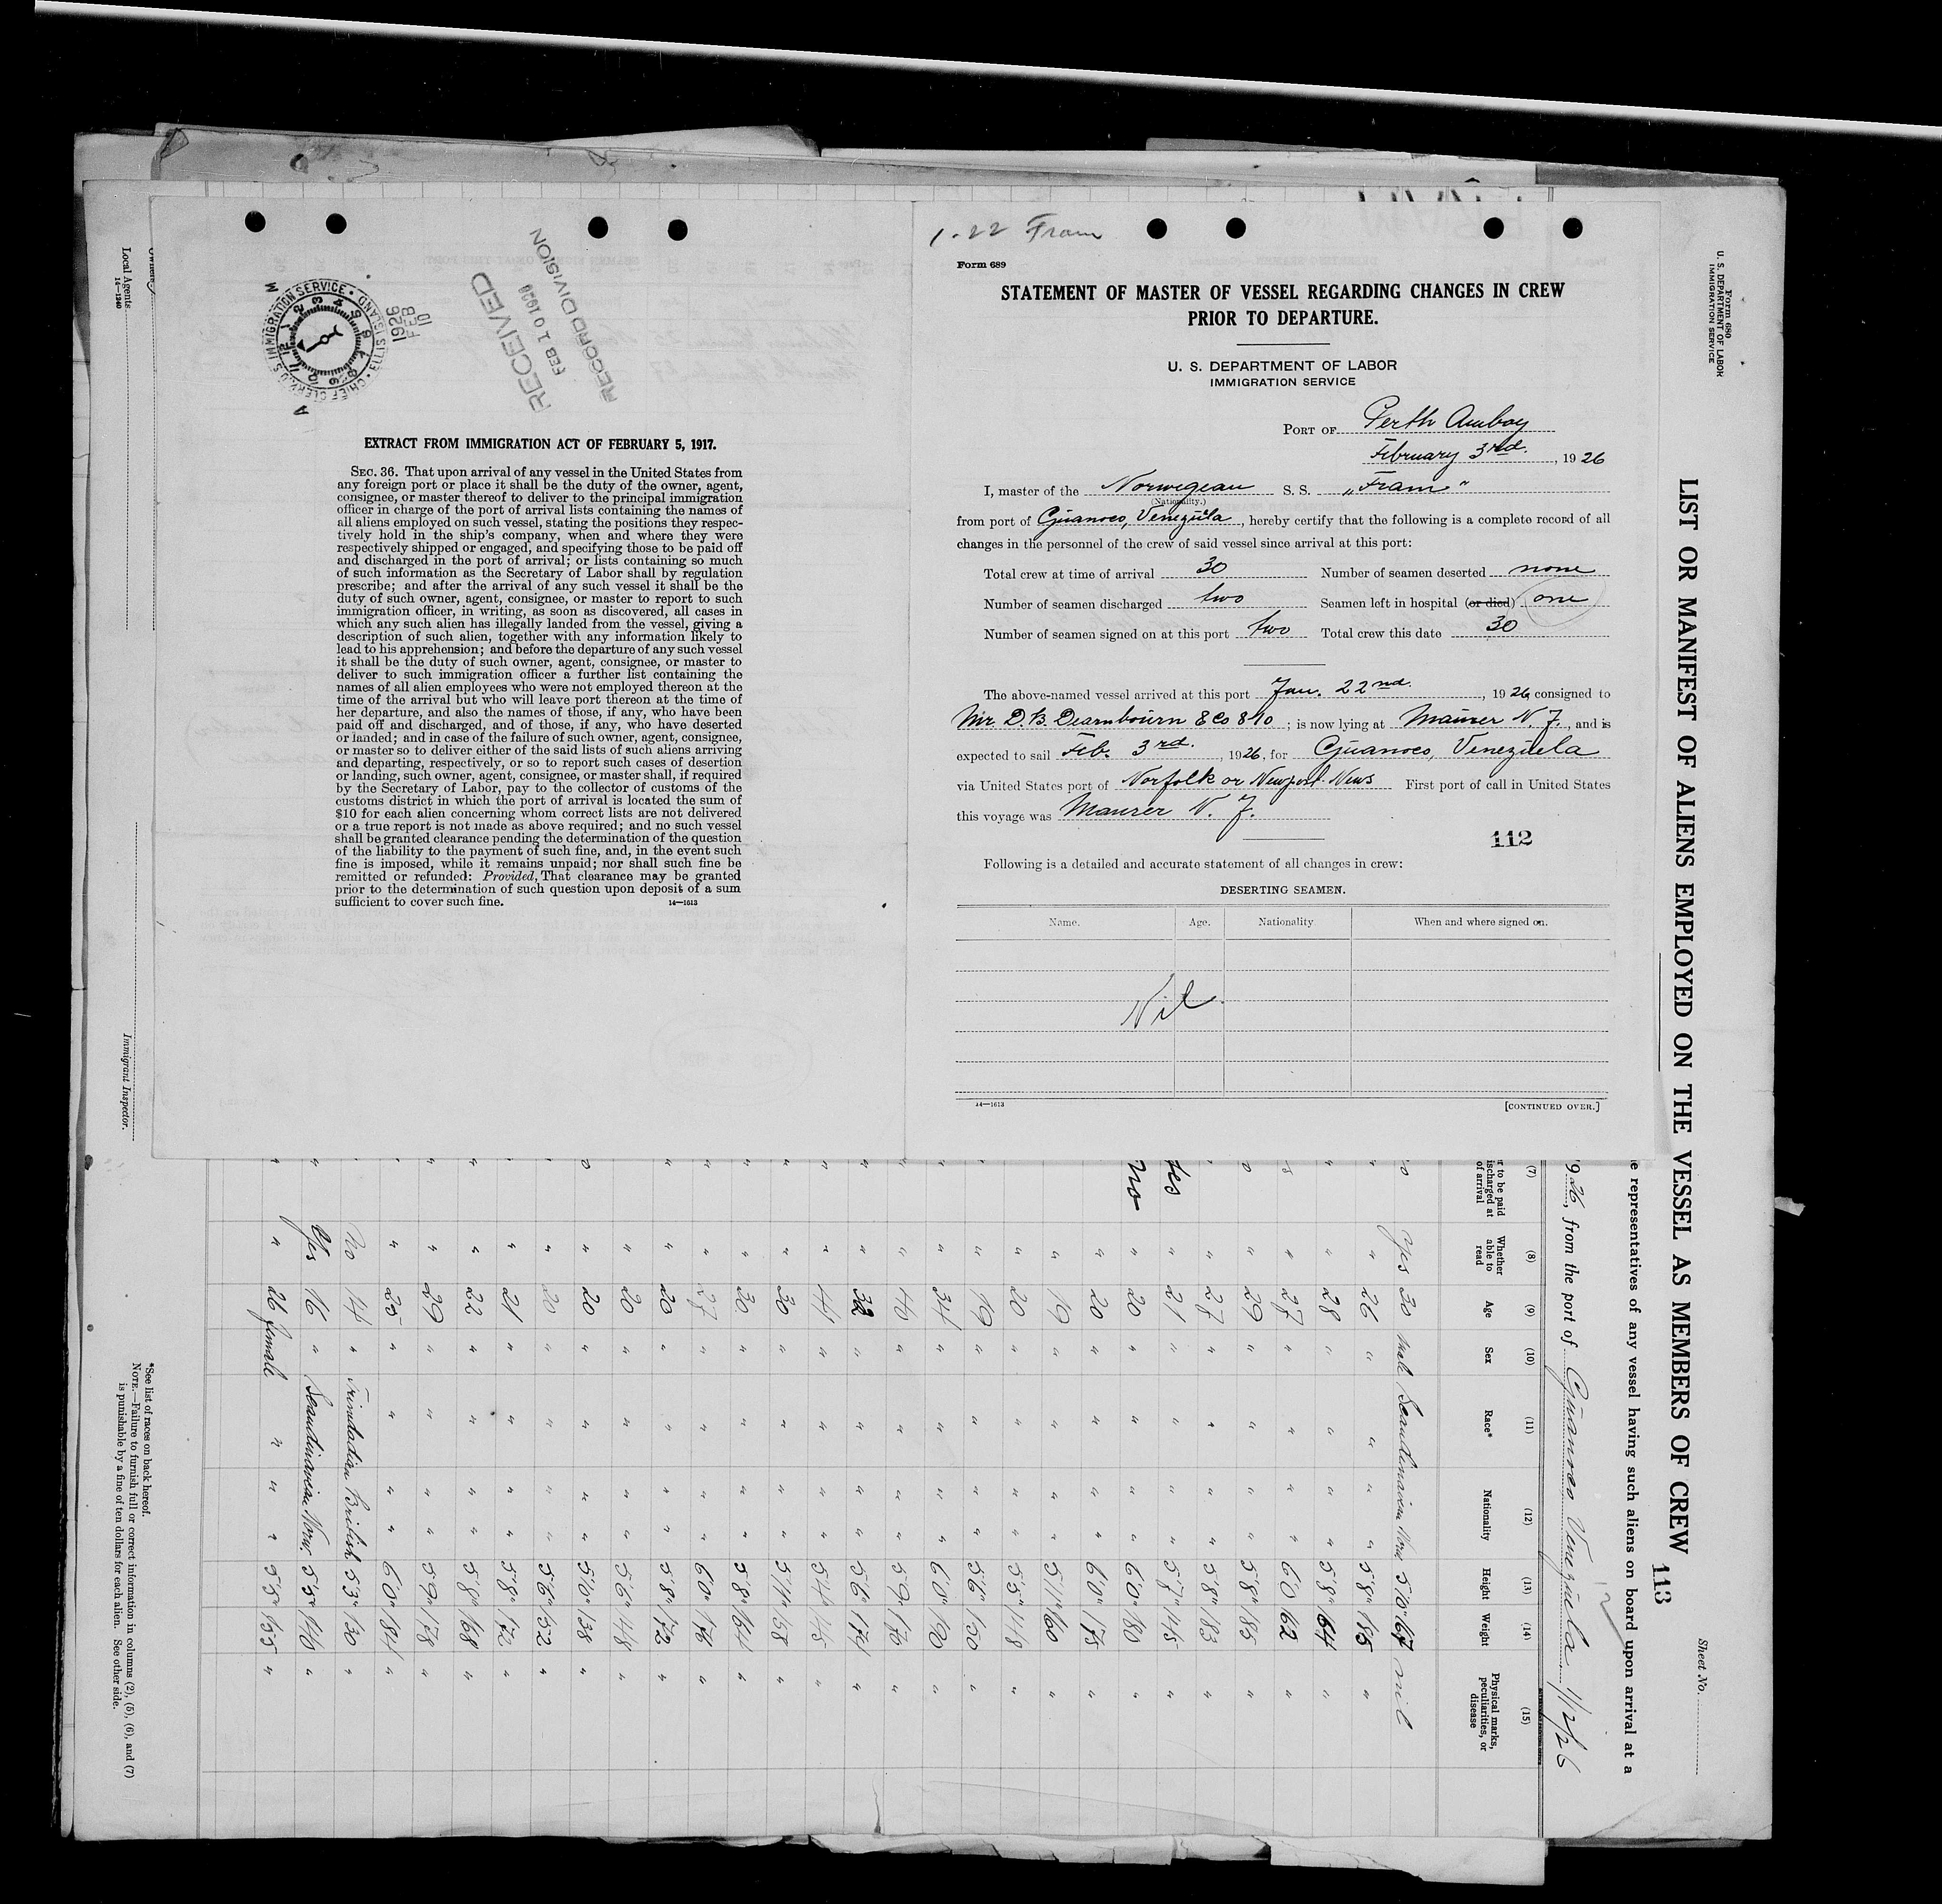 1-22 Fram
Form 689
STATEMENT OF MASTER OF VESSEL REGARDING CHANGES IN CREW
PRIOR TO DEPARTURE.
U. S. DEPARTMENT OF LABOR
IMMIGRATION SERVICE
PORT OF Perth Amboy
February 3rd. , 19 26
I, master of the Norwegean S. S. „Fram"
(Nationality.)
from port of Guanoco, Venezuela, hereby certify that the following is a complete record of all
changes in the personnel of the crew of said vessel since arrival at this port:
Total crew at time of arrival 30 Number of seamen deserted none
Number of seamen discharged two Seamen left in hospital (or died) one
Number of seamen signed on at this port two Total crew this date 30
The above-named vessel arrived at this port Jan. 22nd. , 19 26 consigned to
Mr. D. B. Dearnbourn & Co ; is now lying at Maurer N. J., and is
expected to sail Feb. 3rd. , 1926, for Guanoco, Venezuela
via United States port of Norfolk or Newport News First port of call in United States
this voyage was Maurer N. J.
112
Following is a detailed and accurate statement of all changes in crew:
DESERTING SEAMEN.
Name. Age. Nationality When and where signed on.
Nil
14—1613 [CONTINUED OVER.]
U.S. IMMIGRATION SERVICE • ELLIS ISLAND • CHIEF CLERK
1926
FEB
10
RECEIVED
FEB 10 1926
RECORD DIVISION
EXTRACT FROM IMMIGRATION ACT OF FEBRUARY 5, 1917.
SEC. 36. That upon arrival of any vessel in the United States from
any foreign port or place it shall be the duty of the owner, agent,
consignee, or master thereof to deliver to the principal immigration
officer in charge of the port of arrival lists containing the names of
all aliens employed on such vessel, stating the positions they respec-
tively hold in the ship's company, when and where they were
respectively shipped or engaged, and specifying those to be paid off
and discharged in the port of arrival; or lists containing so much
of such information as the Secretary of Labor shall by regulation
prescribe; and after the arrival of any such vessel it shall be the
duty of such owner, agent, consignee, or master to report to such
immigration officer, in writing, as soon as discovered, all cases in
which any such alien has illegally landed from the vessel, giving a
description of such alien, together with any information likely to
lead to his apprehension; and before the departure of any such vessel
it shall be the duty of such owner, agent, consignee, or master to
deliver to such immigration officer a further list containing the
names of all alien employees who were not employed thereon at the
time of the arrival but who will leave port thereon at the time of
her departure, and also the names of those, if any, who have been
paid off and discharged, and of those, if any, who have deserted
or landed; and in case of the failure of such owner, agent, consignee,
or master so to deliver either of the said lists of such aliens arriving
and departing, respectively, or so to report such cases of desertion
or landing, such owner, agent, consignee, or master shall, if required
by the Secretary of Labor, pay to the collector of customs of the
customs district in which the port of arrival is located the sum of
$10 for each alien concerning whom correct lists are not delivered
or a true report is not made as above required; and no such vessel
shall be granted clearance pending the determination of the question
of the liability to the payment of such fine, and, in the event such
fine is imposed, while it remains unpaid; nor shall such fine be
remitted or refunded: Provided, That clearance may be granted
prior to the determination of such question upon deposit of a sum
sufficient to cover such fine. 14—1613
Form 680
U. S. DEPARTMENT OF LABOR
IMMIGRATION SERVICE
Sheet No.
LIST OR MANIFEST OF ALIENS EMPLOYED ON THE VESSEL AS MEMBERS OF CREW
113
e representatives of any vessel having such aliens on board upon arrival at a
926, from the port of Guanoco Venezuela 1/12/26
(7) (8) (9) (10) (11) (12) (13) (14) (15)
r to be paid ischarged at of arrival Whether able to read Age Sex Race* Nationality Height Weight Physical marks, peculiarities, or disease
o yes 30 male Scandinavian Nor 5'0" 167 nil
" 26 " " " 5'8" 185 "
" 28 " " " 5'8" 164 "
" 27 " " " 6'0 162 "
" 29 " " " 5'8" 185 "
" 27 " " " 5'8" 183 "
yes " 21 " " " 5'7" 145 "
no " 20 " " " 6'0" 180 "
" 20 " " " 6'0" 175 "
" 19 " " " 5'11" 160 "
" 20 " " " 5'5" 148 "
" 19 " " " 5'6" 150 "
" 34 " " " 6'0" 190 "
" 40 " " " 5'9" 170 "
" 32 " " " 5'6" 174 "
" 44 " " " 5'4" 145 "
" 30 " " " 5'11" 158 "
" 30 " " " 5'8" 164 "
" 27 " " " 6'0" 176 "
" 20 " " " 5'8" 172 "
" 20 " " " 5'6" 148 "
" 20 " " " 5'0" 138 "
" 20 " " " 5'6" 152 "
" 21 " " " 5'8" 172 "
" 22 " " " 5'8" 168 "
" 29 " " " 5'9" 178 "
" 25 " " " 6'0" 184 "
No 14 " Trinidadian British 5'3" 130 "
Yes 16 " Scandinavian Norw. 5'5" 140 "
" 26 female " " 5'5" 155 "
*See list of races on back hereof.
NOTE.—Failure to furnish full or correct information in columns (2), (5), (6), and (7)
is punishable by a fine of ten dollars for each alien. See other side.
Local Agents
14—1240
Immigrant Inspector.